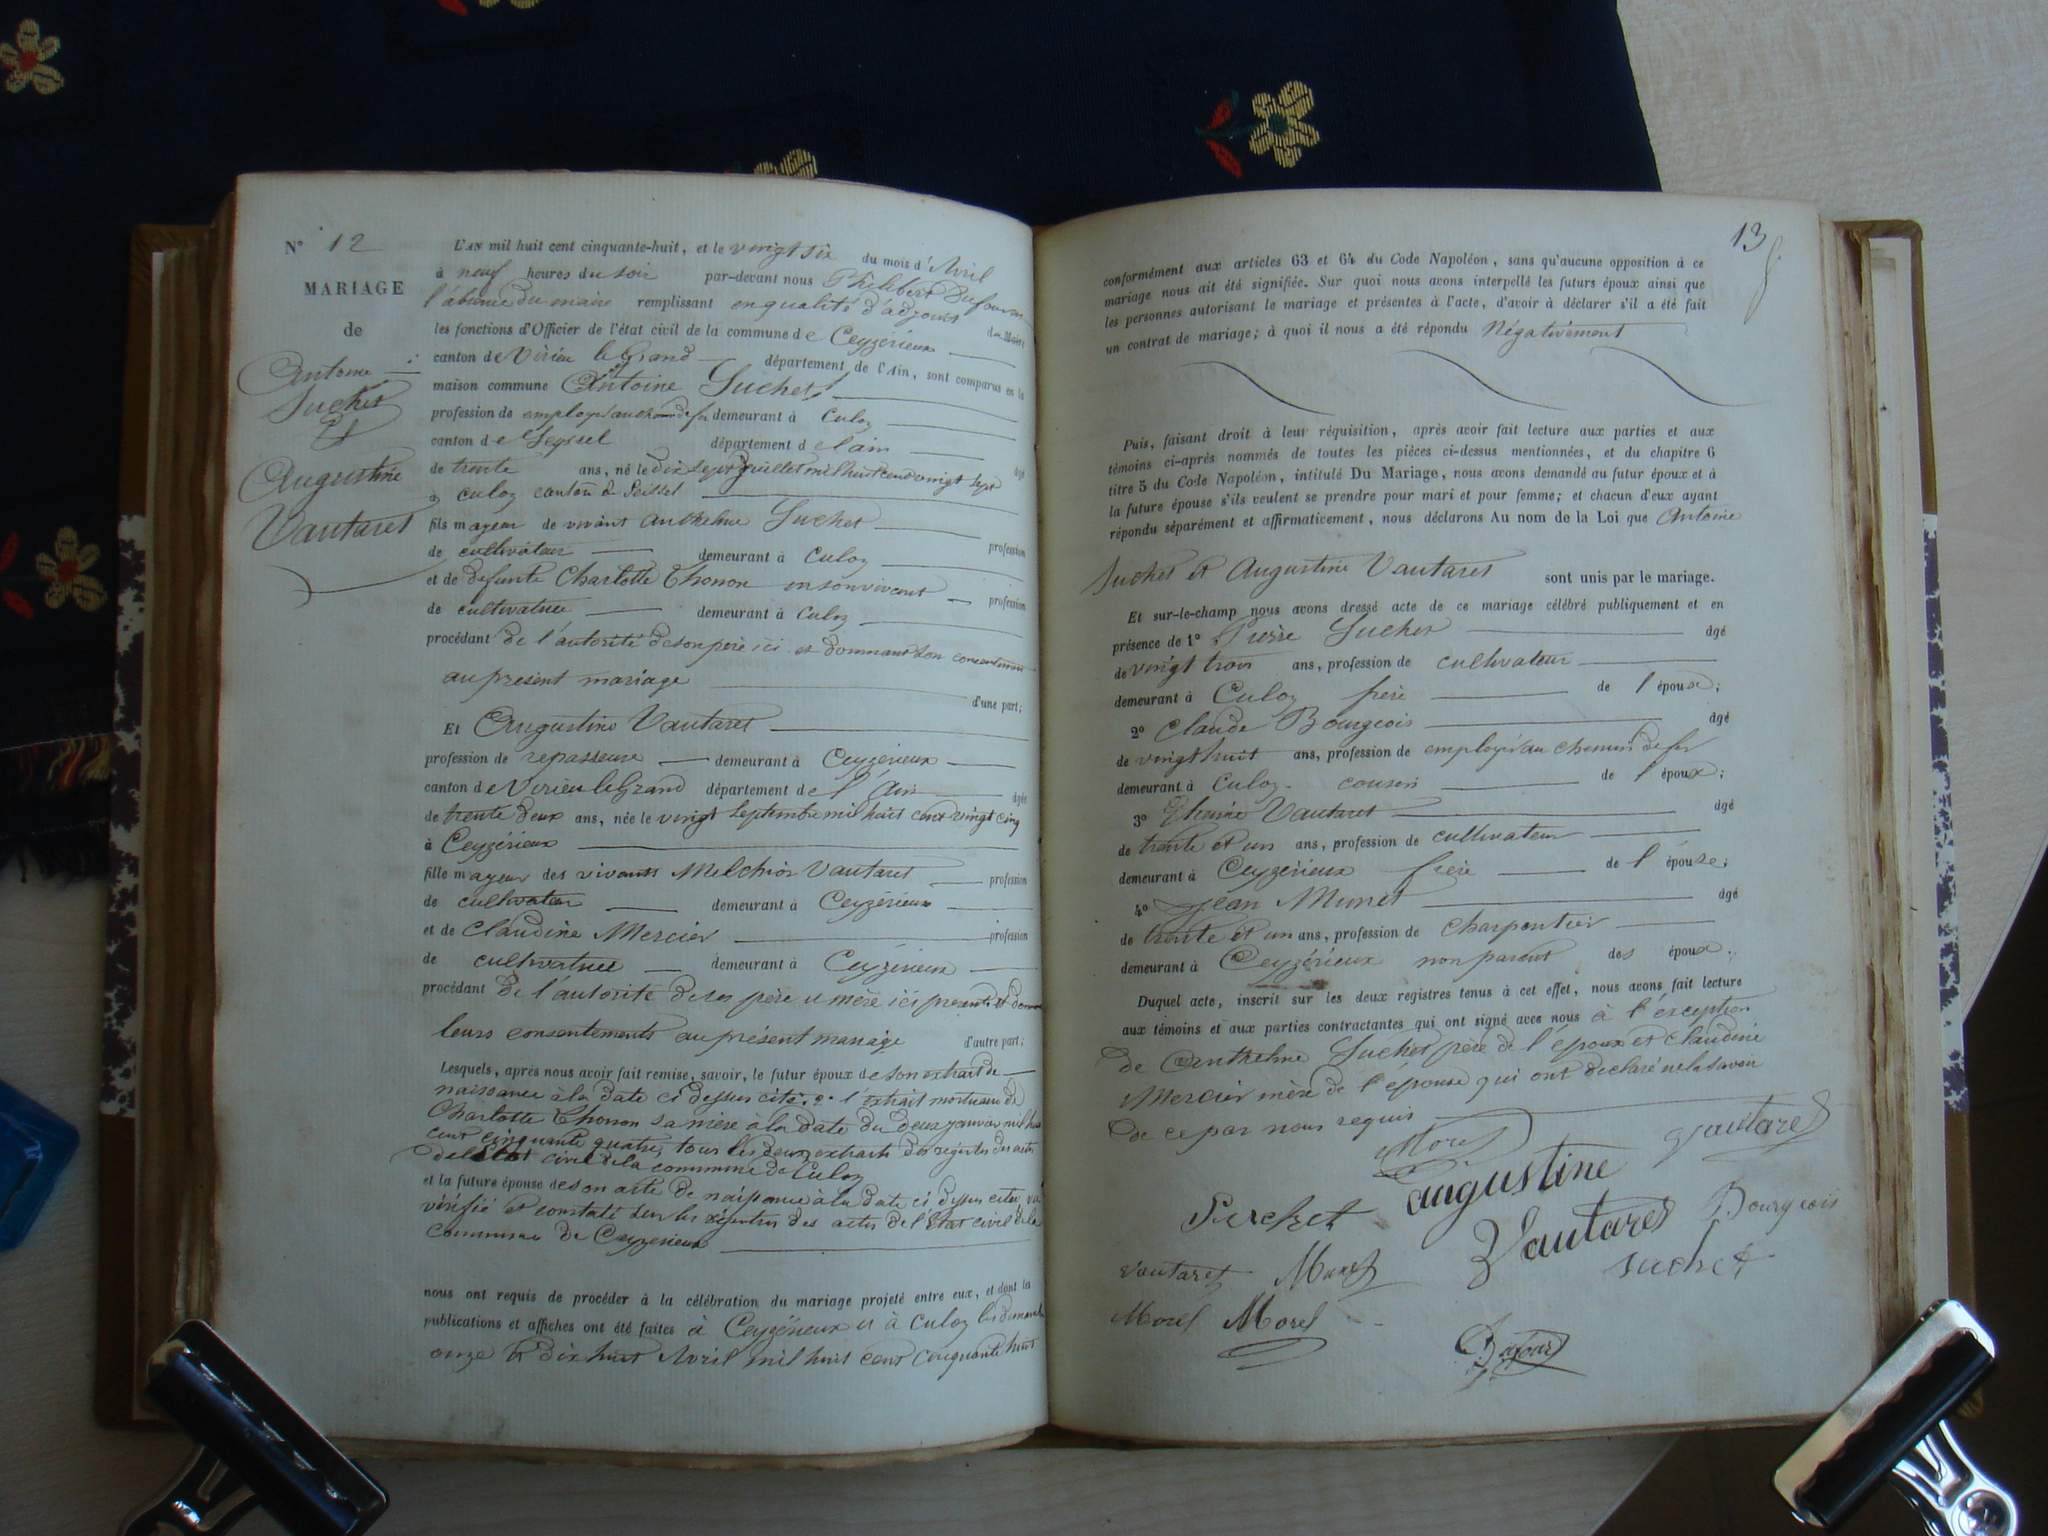 N° 12
MARIAGE
de
Antoine
Suchet
Et
Augustine
Vautaret
L'AN mil huit cent cinquante-huit, et le vingt six du mois d'Avril
à neuf heures du soir par-devant nous Philibert Dufour en
l'absence du maire remplissant en qualité d'adjoint du Maire
les fonctions d'Officier de l'état civil de la commune de Ceyzérieux
canton de Virieu le Grand département de l'Ain, sont comparus en la
maison commune Antoine Suchet
profession de employé au chemin de fer demeurant à Culoz
canton de Seyssel département de l'ain âgé
de trente ans, né le dix sept juillet mil huit cent vingt sept
à Culoz canton de Seissel
fils mayeur de vivant anthelme Suchet profession
de cultivateur demeurant à Culoz
et de defunte Charlotte Thonon en son vivant profession
de cultivatrice demeurant à Culoz
procédant de l'autorité de son père ici et donnant son consentement
au présent mariage d'une part;
Et Augustine Vautaret
profession de repasseuse demeurant à Ceyzérieux
canton de Virieu le Grand département de l'Ain âgée
de trente deux ans, née le vingt septembre mil huit cent vingt cinq
à Ceyzérieux
fille mayeur des vivants Melchior Vautaret profession
de cultivateur demeurant à Ceyzérieux
et de Claudine Mercier profession
de cultivatrice demeurant à Ceyzérieux
procédant de l'autorité de ses père et mère ici présents et donnant
leurs consentements au présent mariage d'autre part;
Lesquels, après nous avoir fait remise, savoir, le futur époux de son extrait de
naissance à la date ci dessus citée. 2° l'extrait mortuaire de
Charlotte Thonon sa mère à la date du deux janvier mil huit
cent cinquante quatre, tous les deux extraits des registres des actes
de l'Etat civil de la commune de Culoz
et la future épouse de son acte de naissance à la date ci dessus citée,
vérifié et constaté sur les régistres des actes de l'Etat civil de la
commune de Ceyzerieux
nous ont requis de procéder à la célébration du mariage projeté entre eux, et dont les
publications et affiches ont été faites à Ceyzérieux et à Culoz les dimanches
onze et dix huit Avril mil huit cent cinquante huit
13
conformément aux articles 63 et 64 du Code Napoléon, sans qu'aucune opposition à ce
mariage nous ait été signifiée. Sur quoi nous avons interpellé les futurs époux ainsi que
les personnes autorisant le mariage et présentes à l'acte, d'avoir à déclarer s'il a été fait
un contrat de mariage; à quoi il nous a été répondu Négativement
Puis, faisant droit à leur réquisition, après avoir fait lecture aux parties et aux
témoins ci-après nommés de toutes les pièces ci-dessus mentionnées, et du chapitre 6
titre 5 du Code Napoléon, intitulé Du Mariage, nous avons demandé au futur époux et à
la future épouse s'ils veulent se prendre pour mari et pour femme; et chacun d'eux ayant
répondu séparément et affirmativement, nous déclarons Au nom de la Loi que Antoine
Suchet et Augustine Vautaret sont unis par le mariage.
Et sur-le-champ nous avons dressé acte de ce mariage célébré publiquement et en
présence de 1° Pierre Suchet âgé
de vingt trois ans, profession de cultivateur
demeurant à Culoz frère de l'époux;
2° Claude Bourgeois âgé
de vingt huit ans, profession de employé au chemin de fer
demeurant à Culoz cousin de l'époux;
3° Vautaret âgé
de trente et un ans, profession de cultivateur
demeurant à Ceyzérieux frère de l'épouse;
4° Jean Munet âgé
de trente et un ans, profession de charpentier
demeurant à Ceyzérieux non parent des époux;
Duquel acte, inscrit sur les deux registres tenus à cet effet, nous avons fait lecture
aux témoins et aux parties contractantes qui ont signé avec nous à l'éxception
de Anthelme Suchet père de l'époux et Claudine
Mercier mère de l'épouse qui ont déclaré ne le savoir
de ce par nous requis
Morel Vautaret
Suchet augustine
Vautaret Bourgeois
vautaret Munet suchet
Morel Morel
Dufour